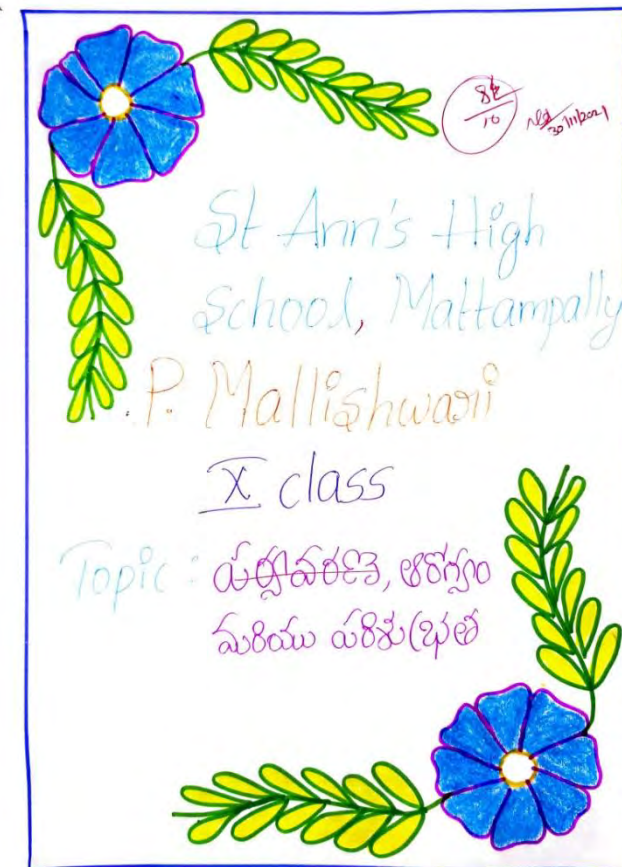 8½
10
30/11/2021
St Ann's High
School, Mattampally
P. Mallishwari
X class
Topic: పర్యావరణ, ఆరోగ్యం
మరియు పరిశుభ్రత